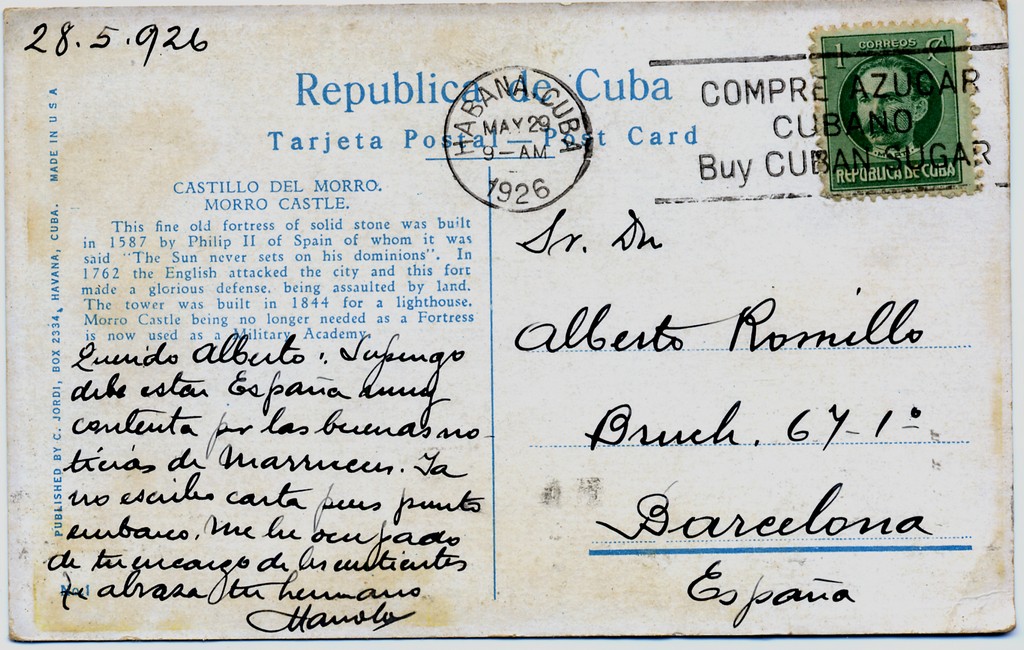 28.5.926
Republica de Cuba
Tarjeta Postal — Post Card
HABANA, CUBA
MAY 29
9-AM
1926
COMPRE AZUCAR
CUBANO
Buy CUBAN SUGAR
1 CORREOS
REPUBLICA DE CUBA
CASTILLO DEL MORRO.
MORRO CASTLE.
This fine old fortress of solid stone was built
in 1587 by Philip II of Spain of whom it was
said "The Sun never sets on his dominions". In
1762 the English attacked the city and this fort
made a glorious defense, being assaulted by land.
The tower was built in 1844 for a lighthouse.
Morro Castle being no longer needed as a Fortress
is now used as a Military Academy.
PUBLISHED BY C. JORDI, BOX 2334, HAVANA, CUBA. MADE IN U S A
Querido Alberto: Supongo
debe estar España muy
contenta por las buenas no-
ticias de Marruecos. Ya
no escribes carta pues pronto
embarco. Me he ocupado
de tu encargo de
Te abraza tu hermano
Manolo
Sr. Dn
Alberto Romillo
Bruch. 67-1º
Barcelona
España